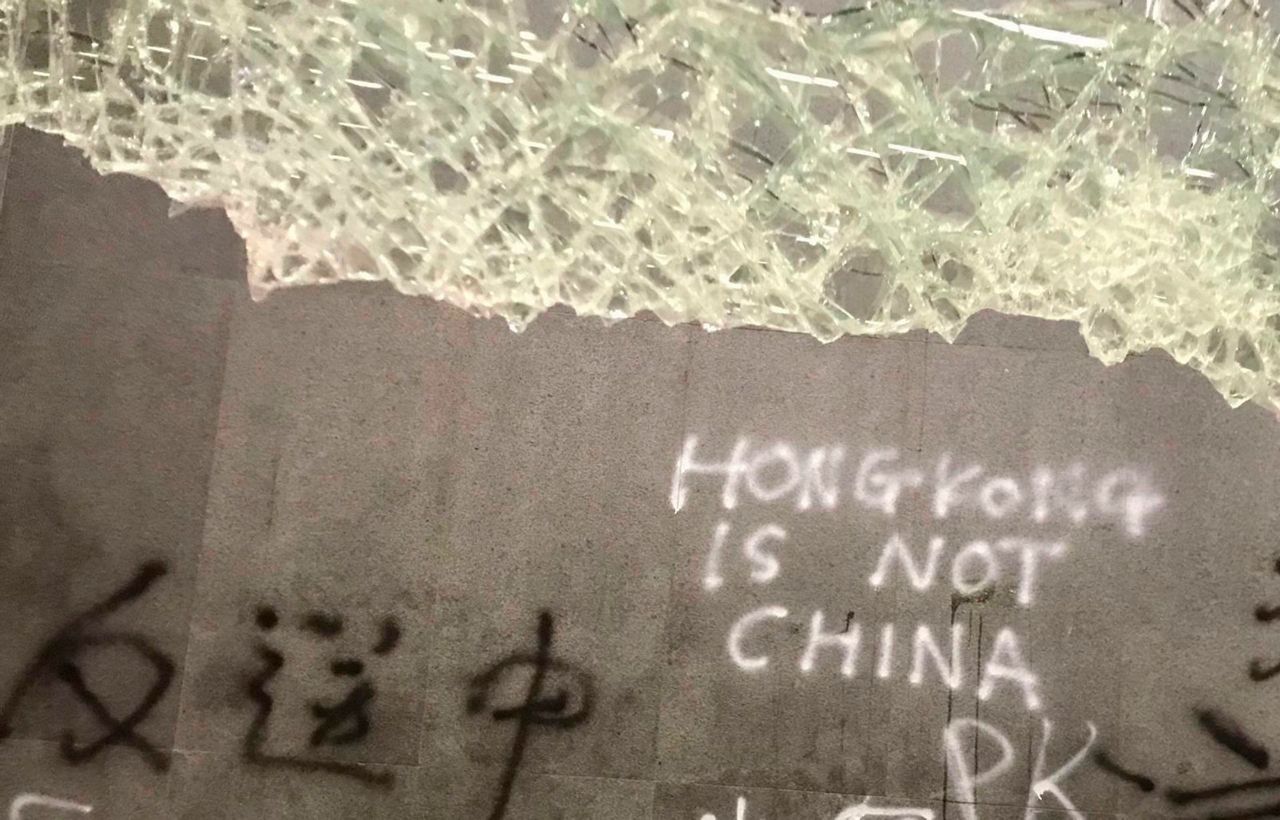 HONG KONG
IS NOT
CHINA
PK
反送中